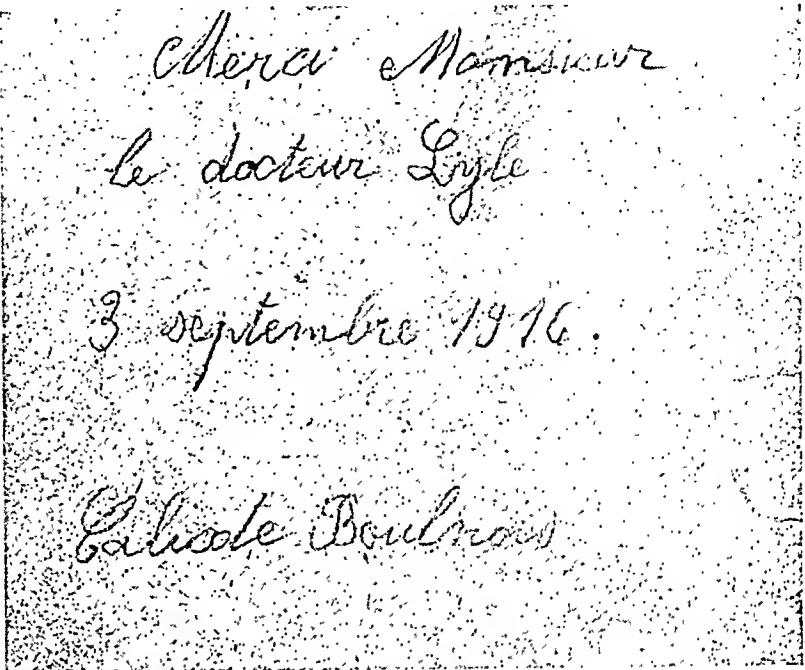 Merci Monsieur
le docteur Lyle
3 septembre 1916.
Boulnois